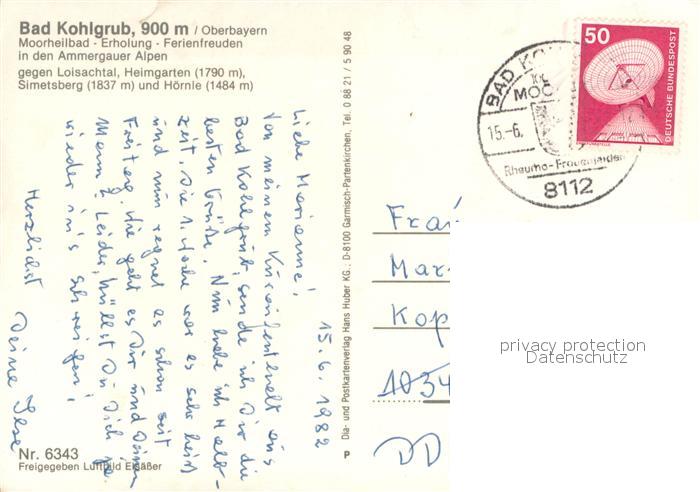 Bad Kohlgrub, 900 m / Oberbayern
Moorheilbad - Erholung - Ferienfreuden
in den Ammergauer Alpen
gegen Loisachtal, Heimgarten (1790 m),
Simetsberg (1837 m) und Hörnle (1484 m)
15.6.1982
Liebe Marianne!
Von meinem Kuraufenthalt aus
Bad Kohlgrub, sende ich Dir die
besten Grüße. Nun habe ich Halb-
zeit. Die 1. Woche war es sehr heiß
und nun regnet es schon seit
Freitag. Wie geht es Dir und Deinem
Mann? Leider, hüllst Du Dich ja
wieder in's Schweigen!
Herzlichst
Deine Ilse
Nr. 6343
Freigegeben Luftbild Elsäßer
Dia- und Postkartenverlag Hans Huber KG., D-8100 Garmisch-Partenkirchen, Tel. 0 88 21 / 5 90 48
P
50
DEUTSCHE BUNDESPOST
BAD KO
MOO
15.-6.
Rheuma-Frauenleiden
8112
Frau
Mar
Kop
1034
DD
privacy protection
Datenschutz